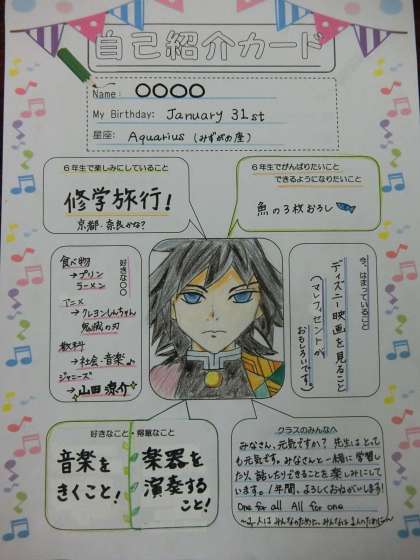 自己紹介カード
Name: 〇〇〇〇
My Birthday: January 31st
星座: Aquarius (みずがめ座)
6年生で楽しみにしていること
修学旅行!
京都・奈良かな?
6年生でがんばりたいこと
できるようになりたいこと
魚の3枚おろし
好きな○○
食べ物
→プリン
ラーメン
アニメ
→クレヨンしんちゃん
鬼滅の刃
教科
→社会・音楽♪
ジャニーズ
→山田涼介
今、はまっていること
ディズニー映画を見ること
(マレフィセントが
おもしろいです。)
好きなこと・得意なこと
音楽を
きくこと!
楽器を
演奏する
こと!
クラスのみんなへ
みなさん、元気ですか? 先生はとって
も元気です。みなさんと一緒に学習し
たり、話したりできることを楽しみにして
います。1年間、よろしくおねがいします!
One for all All for one
〜1人はみんなのために、みんなは1人のために〜